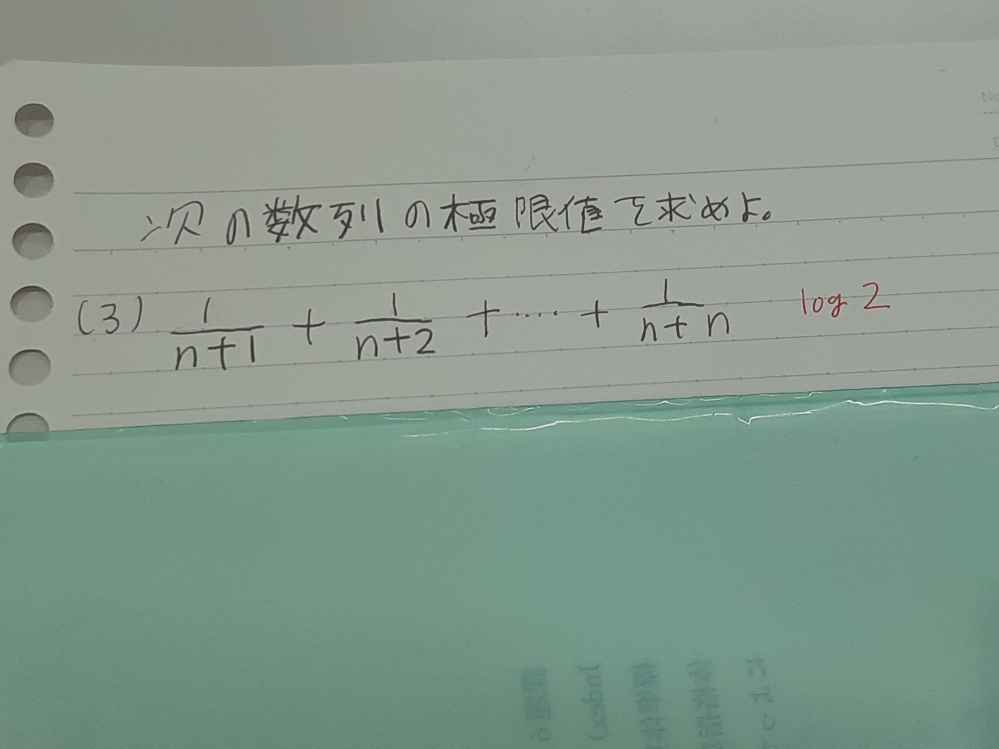 次の数列の極限値を求めよ。
(3) 1/(n+1) + 1/(n+2) + ・・・・ + 1/(n+n) log 2